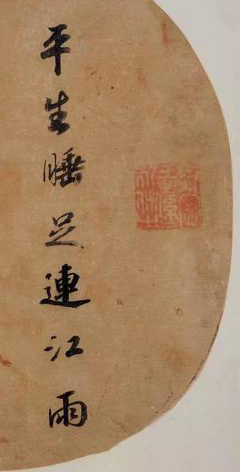 平生睡足連江雨